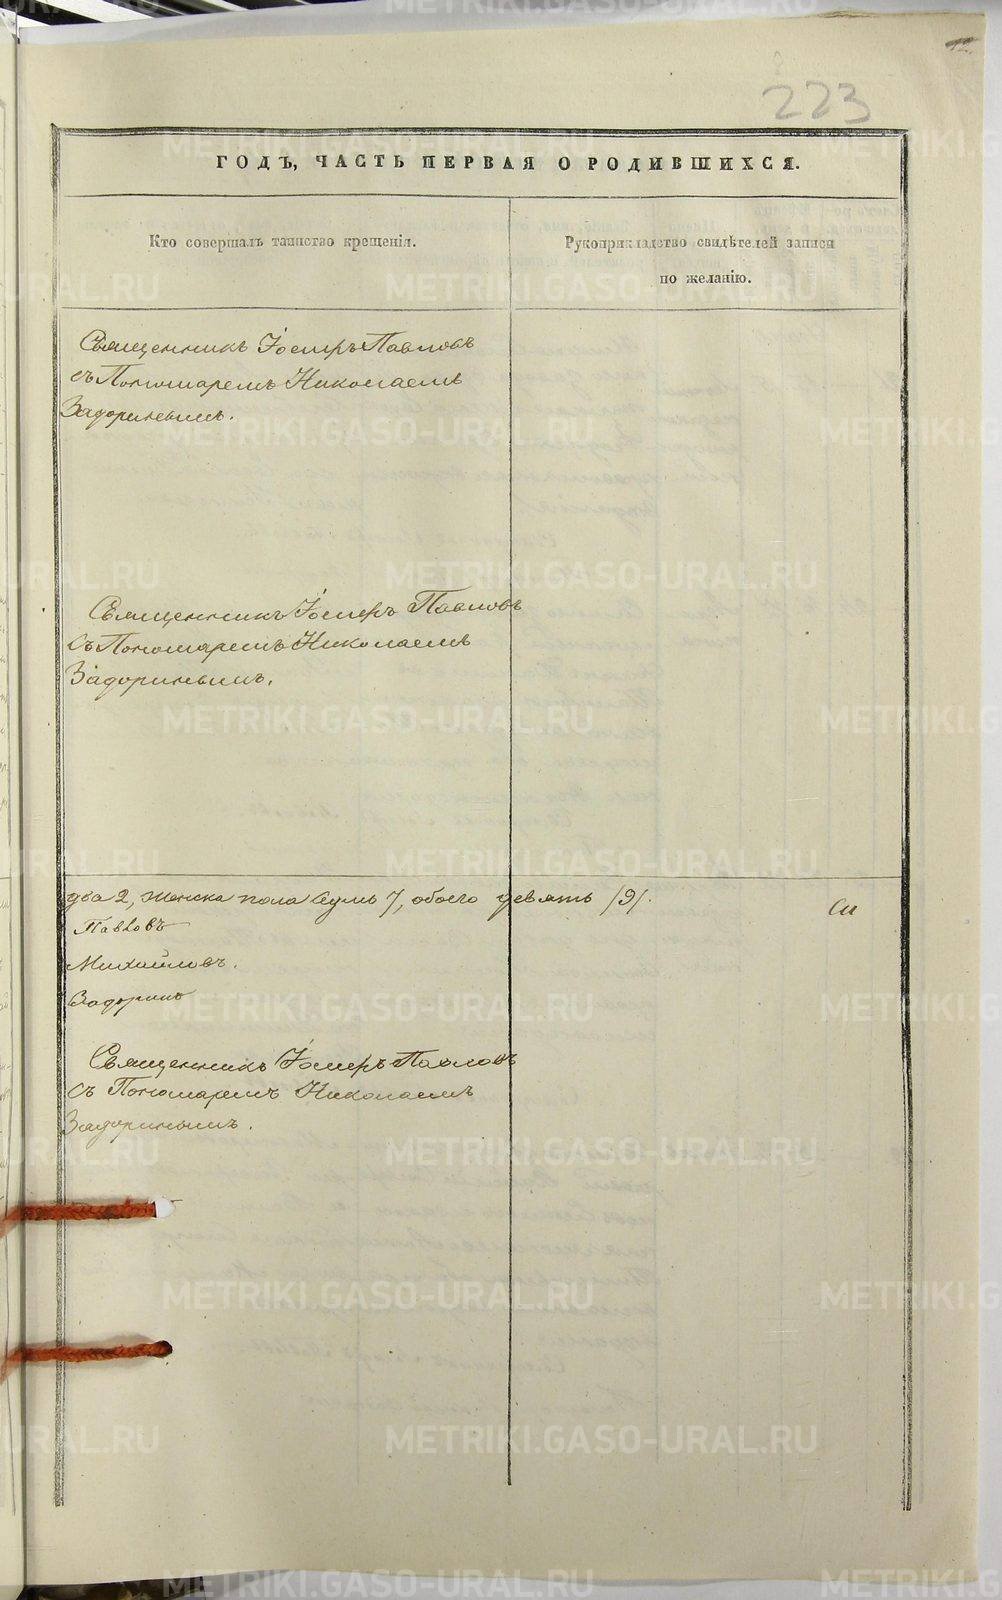 223
ГОДЪ, ЧАСТЬ ПЕРВАЯ О РОДИВШИХСЯ.
Кто совершалъ таинство крещенія.
Рукоприкладство свидѣтелей записи
по желанію.
Священникъ Павловъ
съ Пономаремъ Николаемъ
Задоринымъ.
Священникъ Павловъ
Съ Пономаремъ Николаемъ
Задоринымъ.
два 2, женска пола 7, обоего девять /9/.
Павловъ
Михайловъ.
Задоринъ
Священникъ Павловъ
Съ Пономаремъ Николаемъ
Задоринымъ.
METRIKI.GASO-URAL.RU